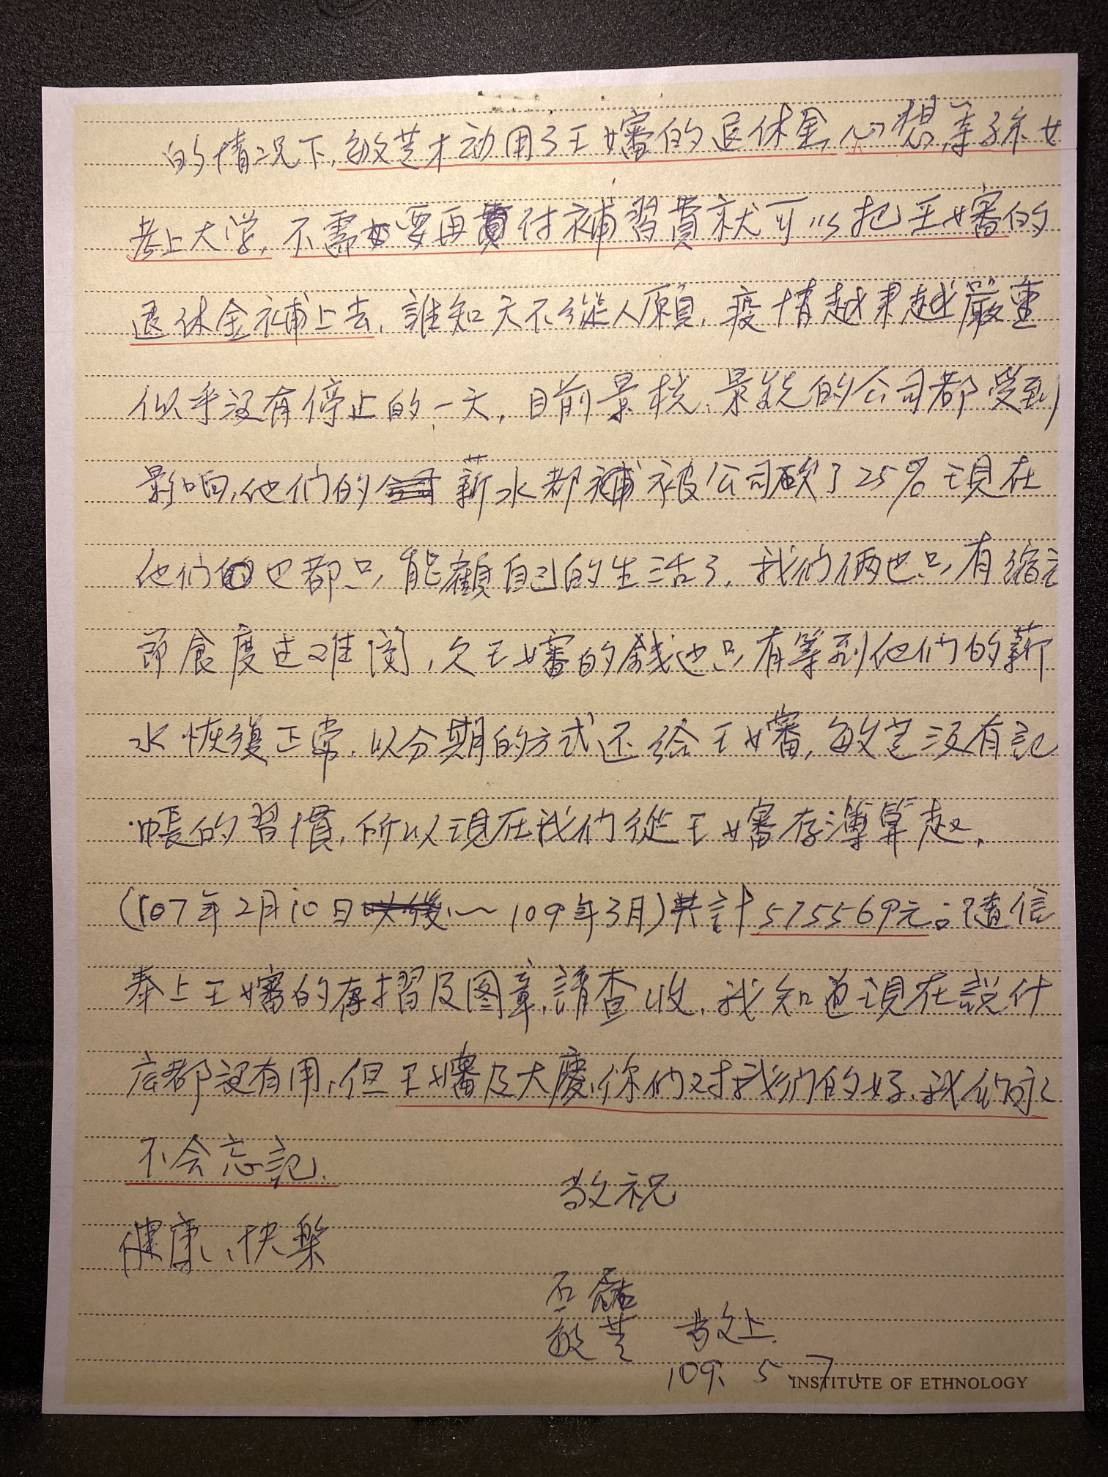 的情况下,敏芝才动用了王嬸的退休金,心想等孫女
考上大学,不需要再付補習費就可以把王嬸的
退休金補上去,誰知天不從人願,疫情越來越嚴重
似乎沒有停止的一天,目前景桄、景銳的公司都受到
影响,他们的薪水都被公司砍了25%現在
他们也都只能顧自己的生活了,我们俩也只有縮衣
節食度过难関,欠王嬸的錢也只有等到他们的薪
水恢復正常,以分期的方式还给王嬸,敏芝沒有記
帳的習慣,所以現在我们從王嬸存簿算起,
(107年2月10日~109年3月)共計575569元;隨信
奉上王嬸的存摺及图章,請查收,我知道現在說什
麼都沒有用,但王嬸及大慶,你们对我们的好,我们永
不会忘記.
敬祝
健康、快樂
石磊
敏芝 敬上
109. 5. 7
INSTITUTE OF ETHNOLOGY